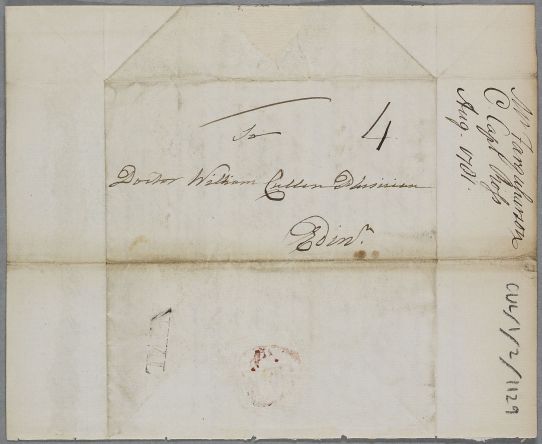 To
4
Doctor William Cullen Physician
Edinr.
Mr Farquharson
C Capt Ross
Aug. 1781.
CUL/1/2/1129